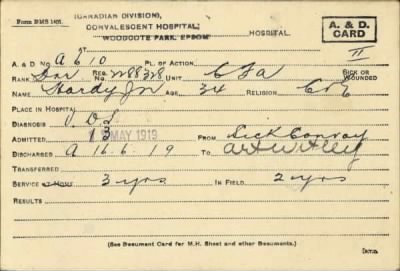 Form DMS 1401. (CANADIAN DIVISION), A. & D. CARD
CONVALESCENT HOSPITAL,
WOODCOTE PARK, EPSOM HOSPITAL.
A. & D. No. A 610 PL. OF ACTION II
RANK REG. NO. UNIT CFA SICK OR WOUNDED
NAME Hardy Jn AGE 34 RELIGION C of E
PLACE IN HOSPITAL
DIAGNOSIS V.D.S
ADMITTED 13 MAY 1919 FROM Sick Convoy
DISCHARGED A 16.6.19 TO Art Witley
TRANSFERRED
SERVICE AT HOME 3 yrs IN FIELD 2 yrs
RESULTS
(See Beaumont Card for M.H. Sheet and other Documents.)